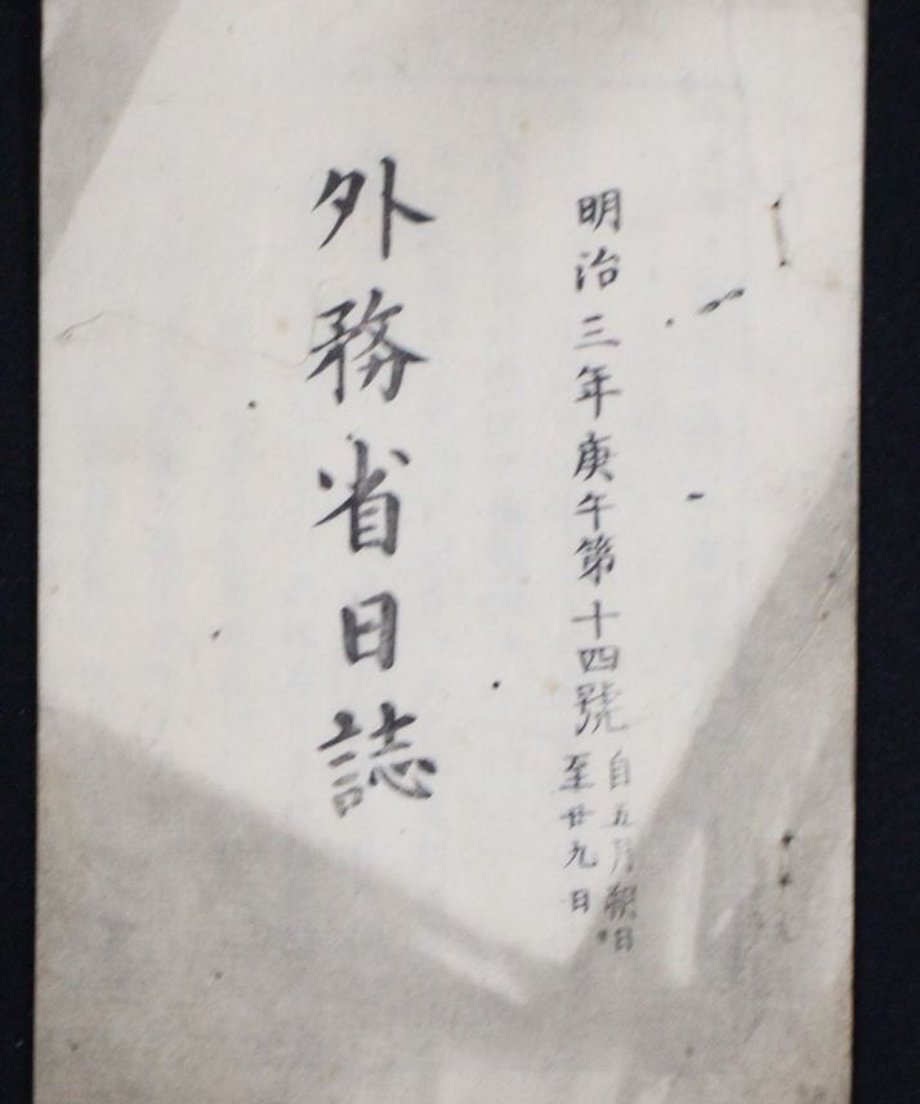 明治三年庚午第十四號
自五月朔日
至廿九日
外務省日誌